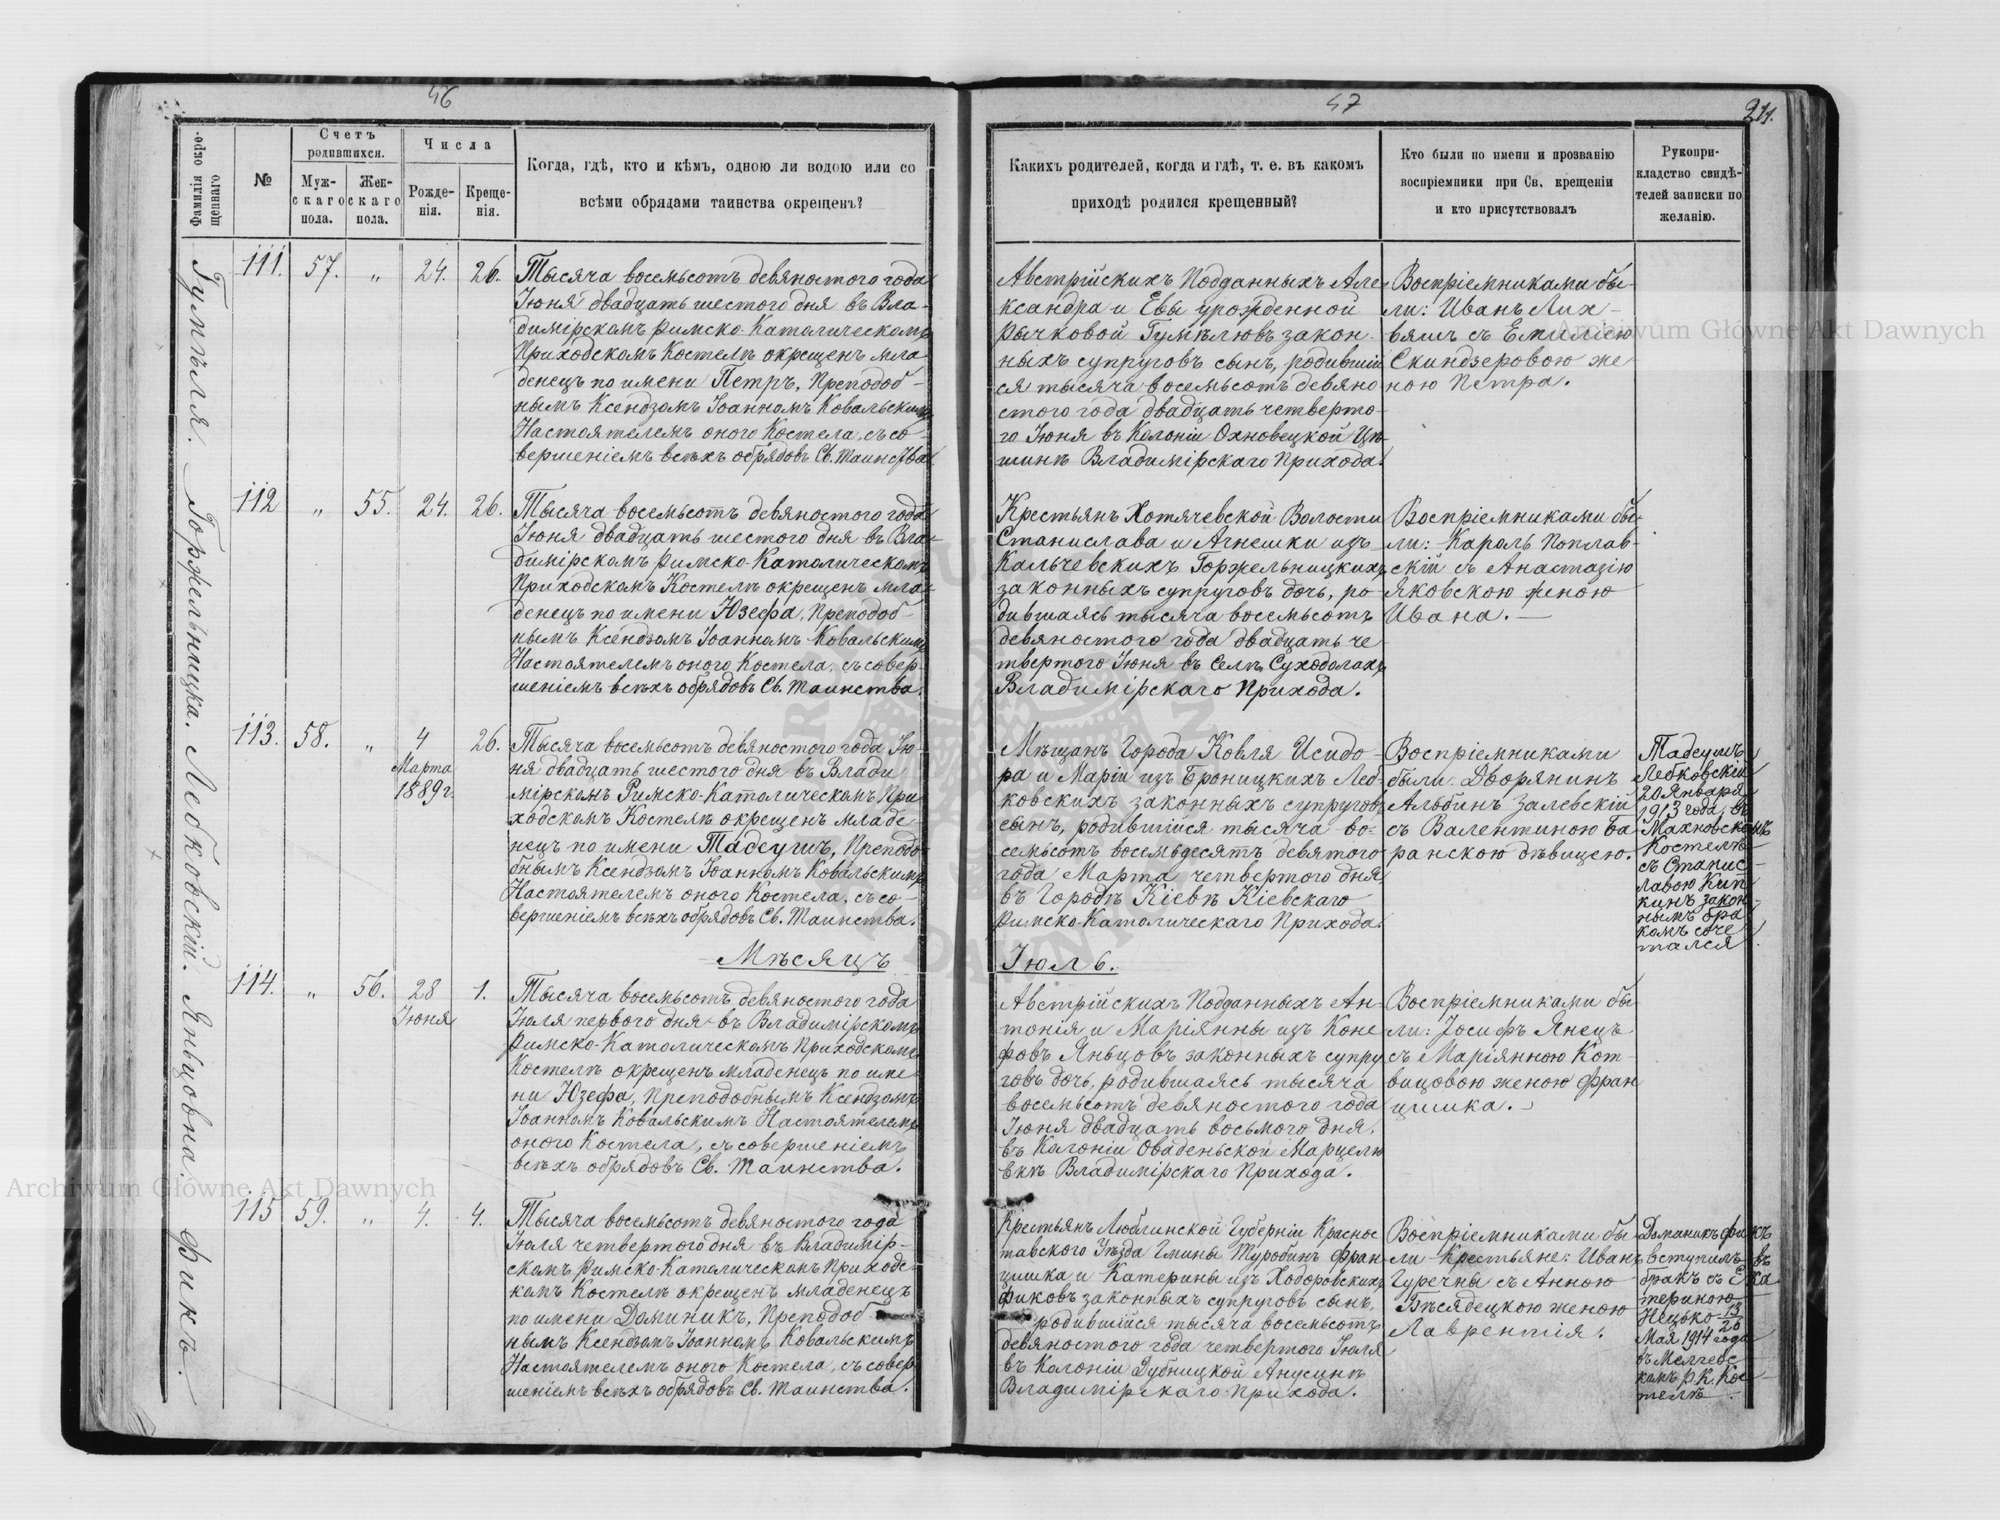 46
Фамилія окрещеннаго
№
Счетъ родившихся.
Мужскаго пола.
Женскаго пола.
Числа
Рожденія.
Крещенія.
Когда, гдѣ, кто и кѣмъ, одною ли водою или со
всѣми обрядами таинства окрещенъ?
47
Какихъ родителей, когда и гдѣ, т. е. въ какомъ
приходѣ родился крещенный?
Кто были по имени и прозванію
воспріемники при Св. крещеніи
и кто присутствовалъ
Рукопри-
кладство свидѣ-
телей записки по
желанію.
Archiwum Główne Akt Dawnych
111. 57. „ 24. 26.
Тысяча восемьсотъ девяностого года
Іюня двадцать шестого дня въ Вла-
димірскомъ Римско-Католическомъ
Приходскомъ Костелѣ окрещенъ мла-
денецъ по имени Петръ, Преподоб-
нымъ Ксендзомъ Іоанномъ Ковальскимъ
Настоятелемъ оного Костела, съ со-
вершеніемъ всѣхъ обрядовъ Св. Таинства.
Австрійскихъ Подданныхъ Але-
ксандра и Евы урожденной
Рычковой Гумѣлювъ закон-
ныхъ супруговъ сынъ, родившій
ся тысяча восемьсотъ девяно
стого года двадцать четверто-
го Іюня въ Колоніи Охновецкой
Владимірскаго Прихода.
Воспріемниками бы-
ли: Иванъ Лих-
вяшъ съ Емиліею
Скиндзеровою же
ною Петра.
112 „ 55. 24. 26.
Тысяча восемьсотъ девяностого года
Іюня двадцать шестого дня въ Вла-
димірскомъ Римско-Католическомъ
Приходскомъ Костелѣ окрещенъ мла-
денецъ по имени Юзефа, Преподоб-
нымъ Ксендзомъ Іоанномъ Ковальскимъ
Настоятелемъ оного Костела, съ совер-
шеніемъ всѣхъ обрядовъ Св. Таинства.
Крестьянъ Хотячевской Волости
Станислава и Агнешки изъ
Кальчевскихъ Горжельницкихъ
законныхъ супруговъ дочь, ро-
дившаясь тысяча восемьсотъ
девяностого года двадцать че
твертого Іюня въ Селѣ Суходолахъ
Владимірскаго Прихода.
Воспріемниками бы-
ли: Кароль Поплав-
скій съ Анастазіею
Яковскою женою
Ивана.
113. 58. „ 4 Марта 1889 г. 26.
Тысяча восемьсотъ девяностого года Ію-
ня двадцать шестого дня въ Влади
мірскомъ Римско-Католическомъ При
ходскомъ Костелѣ окрещенъ младе
нецъ по имени Тадеушъ, Преподо-
бнымъ Ксендзомъ Іоанномъ Ковальскимъ
Настоятелемъ оного Костела, съ со-
вершеніемъ всѣхъ обрядовъ Св. Таинства.
Мѣщанъ Города Ковля Исидо-
ра и Маріи изъ Броницкихъ Лед-
ковскихъ законныхъ супруговъ
сынъ, родившійся тысяча во-
семьсотъ восемьдесятъ девятого
года Марта четвертого дня
въ Городѣ Кіевѣ Кіевскаго
Римско-Католическаго Прихода.
Воспріемниками
были: Дворянинъ
Альбинъ Залевскій
съ Валентиною Ба-
ранскою дѣвицею.
Тадеушъ
Ледковскій
20 Января
1913 года, въ
Махновскомъ
Костелѣ
съ Станис-
лавою Кип-
кинъ закон-
нымъ бра
комъ соче
тался
Мѣсяцъ Іюль.
114. „ 56. 28 Іюня 1.
Тысяча восемьсотъ девяностого года
Іюля первого дня въ Владимірскомъ
Римско-Католическомъ Приходскомъ
Костелѣ окрещенъ младенецъ по име
ни Юзефа, Преподобнымъ Ксендзомъ
Іоанномъ Ковальскимъ Настоятелемъ
оного Костела, съ совершеніемъ
всѣхъ обрядовъ Св. Таинства.
Австрійскихъ Подданныхъ Ан-
тонія и Маріянны изъ Коне
фовъ Яньцовъ законныхъ супру
говъ дочь, родившаясь тысяча
восемьсотъ девяностого года
Іюня двадцать восьмого дня,
въ Колоніи Оваденьской Марцели
вкѣ Владимірскаго Прихода.
Воспріемниками бы-
ли: Іосифъ Янецъ
съ Маріянною Кот-
вицовою женою Фран
цишка.
115 59. „ 4. 4.
Тысяча восемьсотъ девяностого года
Іюля четвертого дня въ Владимір-
скомъ Римско-Католическомъ Приходс-
комъ Костелѣ окрещенъ младенецъ
по имени Доминикъ, Преподоб-
нымъ Ксендзомъ Іоанномъ Ковальскимъ
Настоятелемъ оного Костела, съ совер
шеніемъ всѣхъ обрядовъ Св. Таинства.
Крестьянъ Люблинской Губерніи Краснос
тавского Уѣзда Гмины Туробинъ Фран
цишка и Катерины изъ Ходоровскихъ
Фиковъ законныхъ супруговъ сынъ,
родившійся тысяча восемьсотъ
девяностого года четвертого Іюля
въ Колоніи Дубницкой Анусинѣ
Владимірскаго Прихода.
Воспріемниками бы
ли Крестьяне: Иванъ
Гуречны съ Анною
Бѣсядецкою женою
Лаврентія.
Доминикъ Фикъ
вступилъ въ
бракъ съ Ека
териною
Нецько 13/26
Мая 1914 года
въ
комъ р. к. Кос
телѣ.
Гумѣля. Горжельницка. Ледковскій. Яньцовна. Фикъ.
Archiwum Główne Akt Dawnych